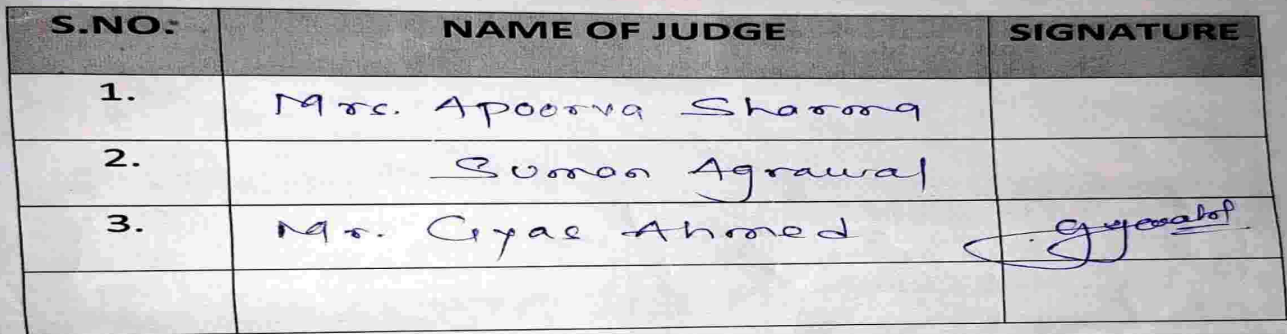 S.NO: NAME OF JUDGE SIGNATURE
1. Mrs. Apoorva Sharma
2. Suman Agrawal
3. Mr. Gyas Ahmed